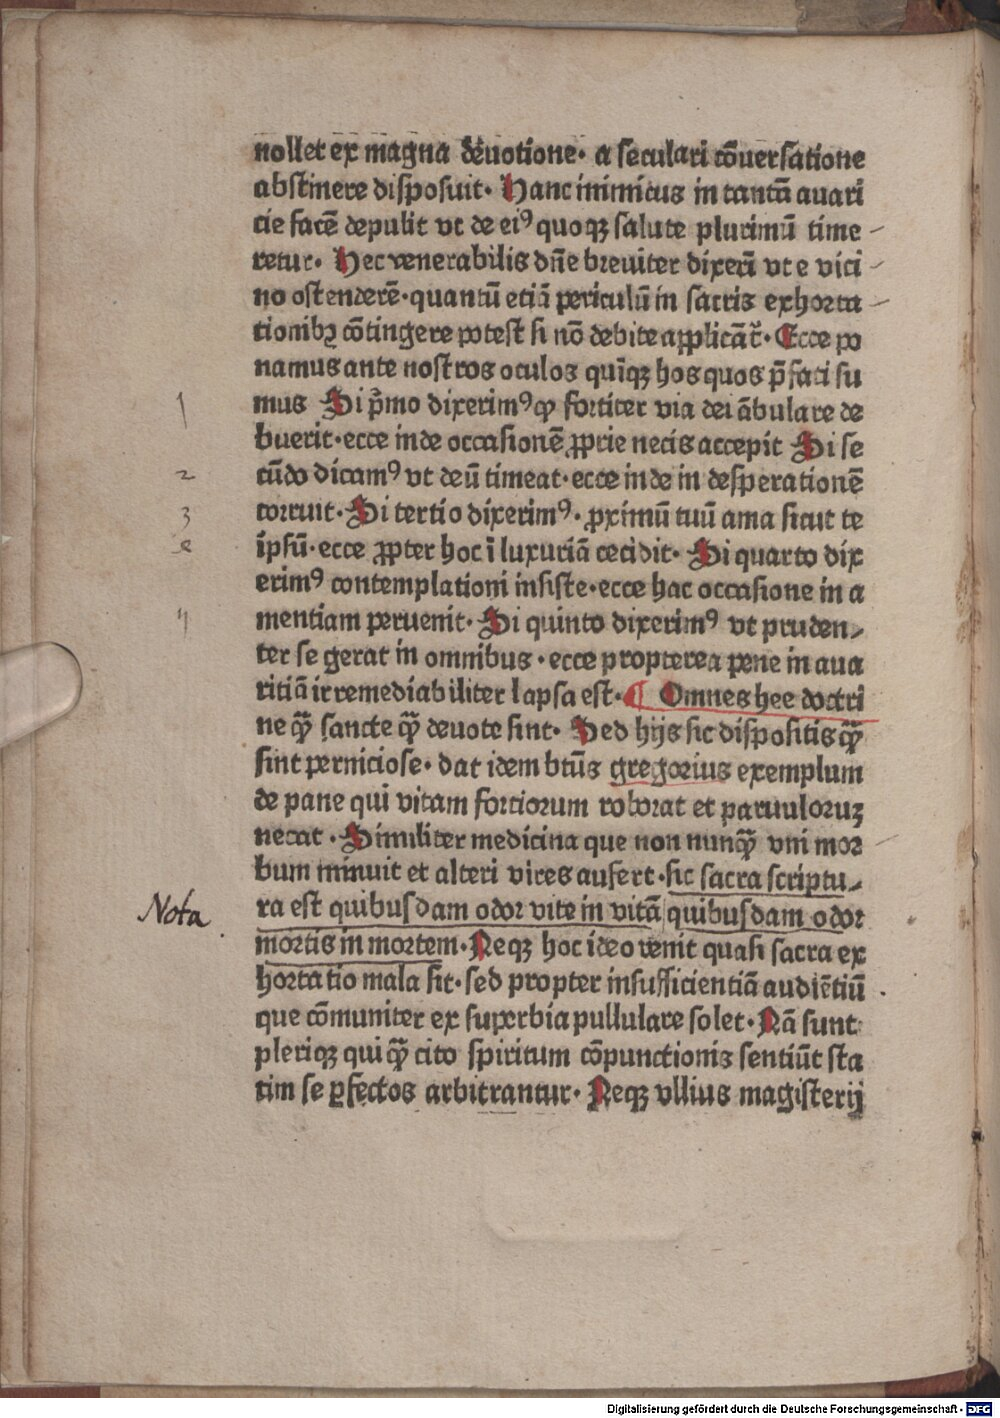 nollet ex magna deuotione· a seculari cōuersatione
abstinere disposuit· Hanc inimicus in tantā auari
cie facē depulit vt de ei⁹ quoqꝫ salute plurimū time
retur· Hec venerabilis dn̄e breuiter dixerī vt e vici
no ostenderē·quantū etiā periculū in sacris exhorta
tionibꝫ cōtingere potest si nō debite applicāt᷑· Ecce po
namus ante nostros oculos quīqꝫ hos quos p̄fati su
mus Si p̄mo dixerim⁹ ꝙ fortiter via dei ābulare de
1
buerit·ecce inde occasionē ꝓprie necis accepit Si se
cūdo dicam⁹ vt deū timeat·ecce inde in desperationē
2
corruit· Si tertio dixerim⁹· ꝓximū tuū ama sicut te
3
ip̄sū·ecce ꝓpter hoc ī luxuriā cecidit· Si quarto dix
erim⁹ contemplationi insiste·ecce hac occasione in a
mentiam peruenit· Si quinto dixerim⁹ vt pruden-
ter se gerat in omnibus·ecce propterea pene in aua
ritiā irremediabiliter lapsa est· ¶ Omnes hee doctri
ne qᷓꝫ sancte qᷓꝫ deuote sint· Sed hijs sic dispositis qᷓꝫ
sint perniciose· dat idem btūs gregorius exemplum
de pane qui vitam fortiorum roborat et paruuloruꝫ
necat· Similiter medicina que non nunqᷓꝫ vni mor
bum minuit et alteri vires aufert·sic sacra scriptu-
ra est quibusdam odor vite in vitā quibusdam odor
Nota
mortis in mortem· Neqꝫ hoc ideo venit quasi sacra ex
hortatio mala sit·sed propter insufficientiā audiētiū
que cōmuniter ex superbia pullulare solet· Nā sunt
pleriqꝫ qui qᷓꝫ cito spiritum cōpunctionis sentiūt sta
tim se ꝑfectos arbitrantur· Neqꝫ vllius magisterij
Digitalisierung gefördert durch die Deutsche Forschungsgemeinschaft - DFG